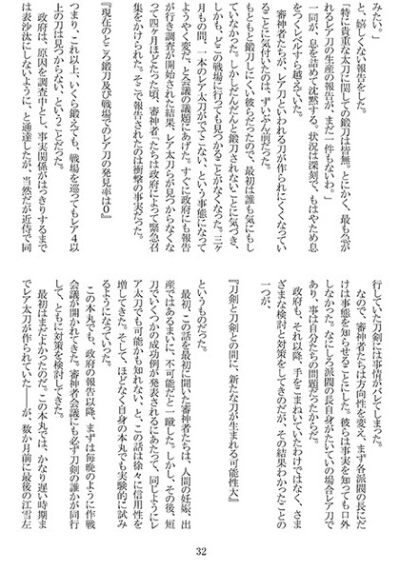 みたい。」
と、嬉しくない報告をした。
「特に貴重な太刀に関しての鍛刀は皆無。とにかく、最も☆が
れるレア刀の生産の報告が、まだ一件もないわ。」
一同が、息を詰めて沈黙する。状況は深刻で、もはやため息
をつくレベルすら越えていた。
審神者たちが、レア刀といわれる刀が作られにくくなってい
ることに気付いたのは、ずいぶん前だった。
もともと鍛刀しにくい彼らだったので、最初は誰も気にもし
ていなかった。しかしだんだんと鍛刀されないことに気づき、
しかも、どこの戦場に行っても見つかることがなくなった。三ヶ
月もの間、一本のレア太刀がでてこない、という事態になって
ようやく変だ、と会議の議題にあげた。すぐに政府にも報告
が行き調査が開始された結果、レア太刀らが見つからなくな
って四ヶ月ほどたった頃、審神者たちは政府によって緊急召
集をかけられた。そこで報告されたのは衝撃の事実だった。
『現在のところ鍛刀及び戦場でのレア刀の発見率は0』
つまり、これ以上、いくら鍛えても、戦場を巡ってもレア4以
上の刀は見つからない、ということだった。
政府は、原因を調査中とし、事実関係がはっきりするまで
は表沙汰にしないように、と通達したが、当然だが近侍で同
行していた刀剣には事情がバレてしまった。
なので、審神者たちは方向性を変え、まず各派閥の長にだ
けは事態を知らせることにした。彼らは事実を知っても口外
しなかった。なにしろ派閥の長自身がたいていの場合レア刀で
あり、事は自分たちの問題だったからだ。
政府も、それ以降、手をこまねいていたわけではなく、さま
ざまな検討と対策をしてきたのだが、その結果わかったことの
一つが、
『刀剣と刀剣との間に、新たな刀が生まれる可能性大』
というものだった。
最初、この話を最初に聞いた審神者たちは、人間の妊娠、出
産ではあるまいに、不可能だと一蹴した。しかし、その後、短
刀でいくつかの成功例が発表されるにあたって、同じようにレ
ア太刀でも可能かも知れない、と、この話は徐々に信用性を
増してきた。そして、ほどなく自身の本丸でも実験的に試み
るようになっていった。
この本丸でも、政府の報告以降、まずは毎晩のように作戦
会議が開かれてきた。審神者会議にも必ず刀剣の誰かが同行
して、ともに対策を検討してきた。
最初はまだよかったのだ。この本丸では、かなり遅い時期ま
でレア太刀が作られていた――が、数か月前に最後の江雪左
32